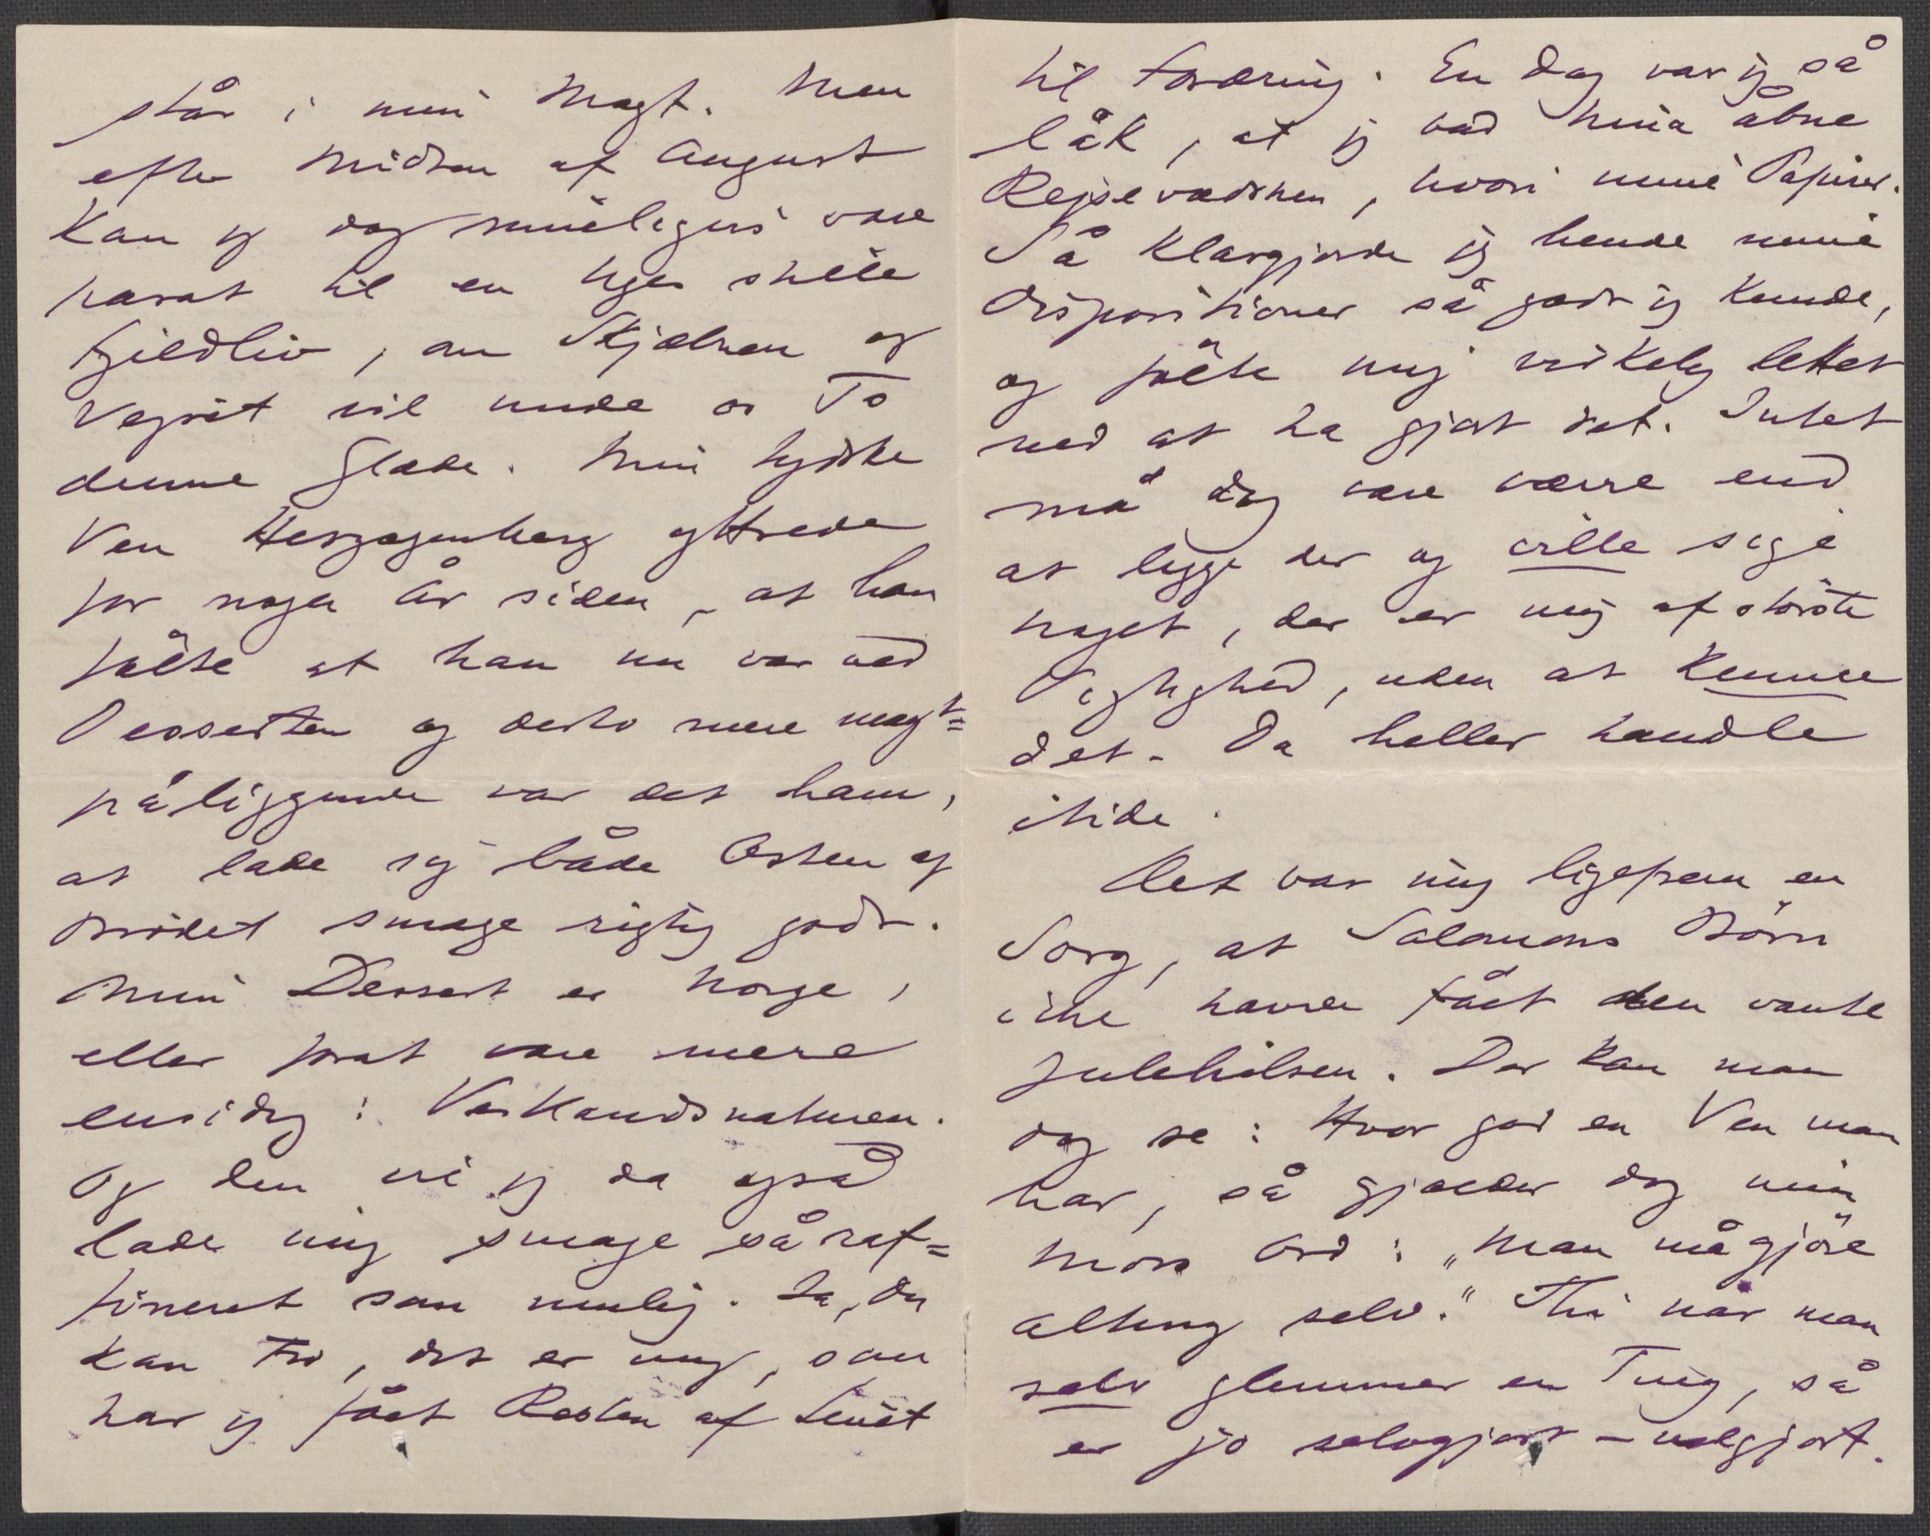 står i min Magt. Men
efter Midten af August
kan jeg dog muligens være
parat til en Uges stille
Fjeldliv, om Skjæbnen og
Vejret vil unde os To
denne Glæde. Min tydske
Ven Herzogenberg yttrede
for nogen År siden, at han
følte at han nu var ved
Desserten og desto mere magt=
påliggende var det ham,
at lade sig både Osten og
Brødet smage rigtig godt.
Min Dessert er Norge,
eller for at være mere
ensidig: Vestlandsnaturen.
Og den vil jeg da også
lade mig smage så raf=
fineret som mulig. Ja, Du
kan tro, det er mig, som
har jeg fået Resten af Livet
til Foræring. En Dag var jeg så
låk, at jeg bad Nina åbne
Rejsevædsken, hvori mine Papirer.
Så klargjorde jeg hende mine
Dispositioner så godt jeg kunde,
og følte mig virkelig lettet
ved at ha gjort det. Intet
må dog være værre end
at ligge der og ville sige
noget, der er mig af største
Vigtighed, uden at kunne
det. Da heller handle
itide.
Det var mig ligefrem en
Sorg, at Salomons Børn
ikke havde fået den vante
Julehilsen. Der kan man
dog se: Hvor god en Ven man
har, så gjælder dog min
Mors Ord: "Man må gjöre
alting selv." Thi når man
selv glemmer en Ting, så
er jo selvgjort – velgjort.